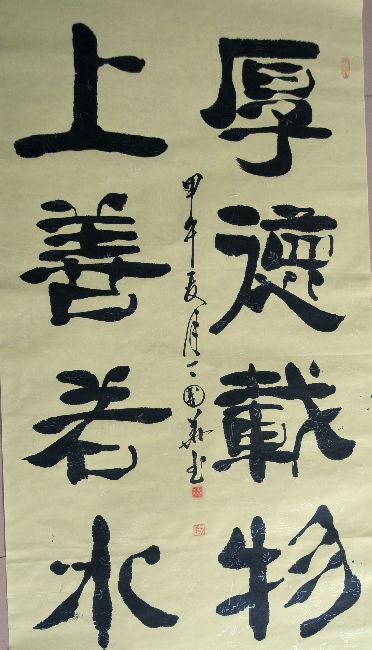 厚德載物
上善若水
甲午夏月